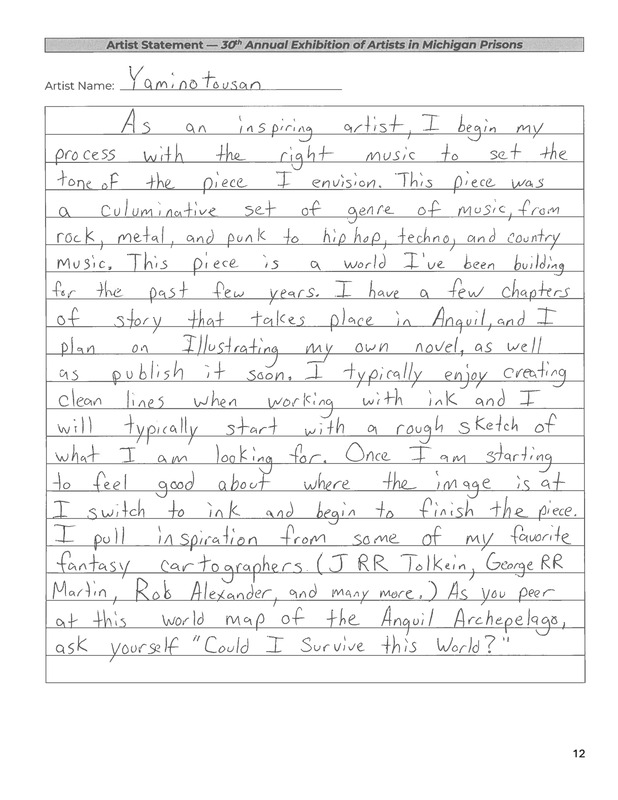 Artist Statement — 30th Annual Exhibition of Artists in Michigan Prisons
Artist Name: Yaminotousan
As an inspiring artist, I begin my
process with the right music to set the
tone of the piece I envision. This piece was
a culuminative set of genre of music, from
rock, metal, and punk to hip hop, techno, and country
music. This piece is a world I've been building
for the past few years. I have a few chapters
of story that takes place in Anguil, and I
plan on Illustrating my own novel, as well
as publish it soon. I typically enjoy creating
clean lines when working with ink and I
will typically start with a rough sketch of
what I am looking for. Once I am starting
to feel good about where the image is at
I switch to ink and begin to finish the piece.
I pull inspiration from some of my favorite
fantasy cartographers (J RR Tolkein, George RR
Martin, Rob Alexander, and many more.) As you peer
at this world map of the Anguil Archepelago,
ask yourself "Could I Survive this World?"
12